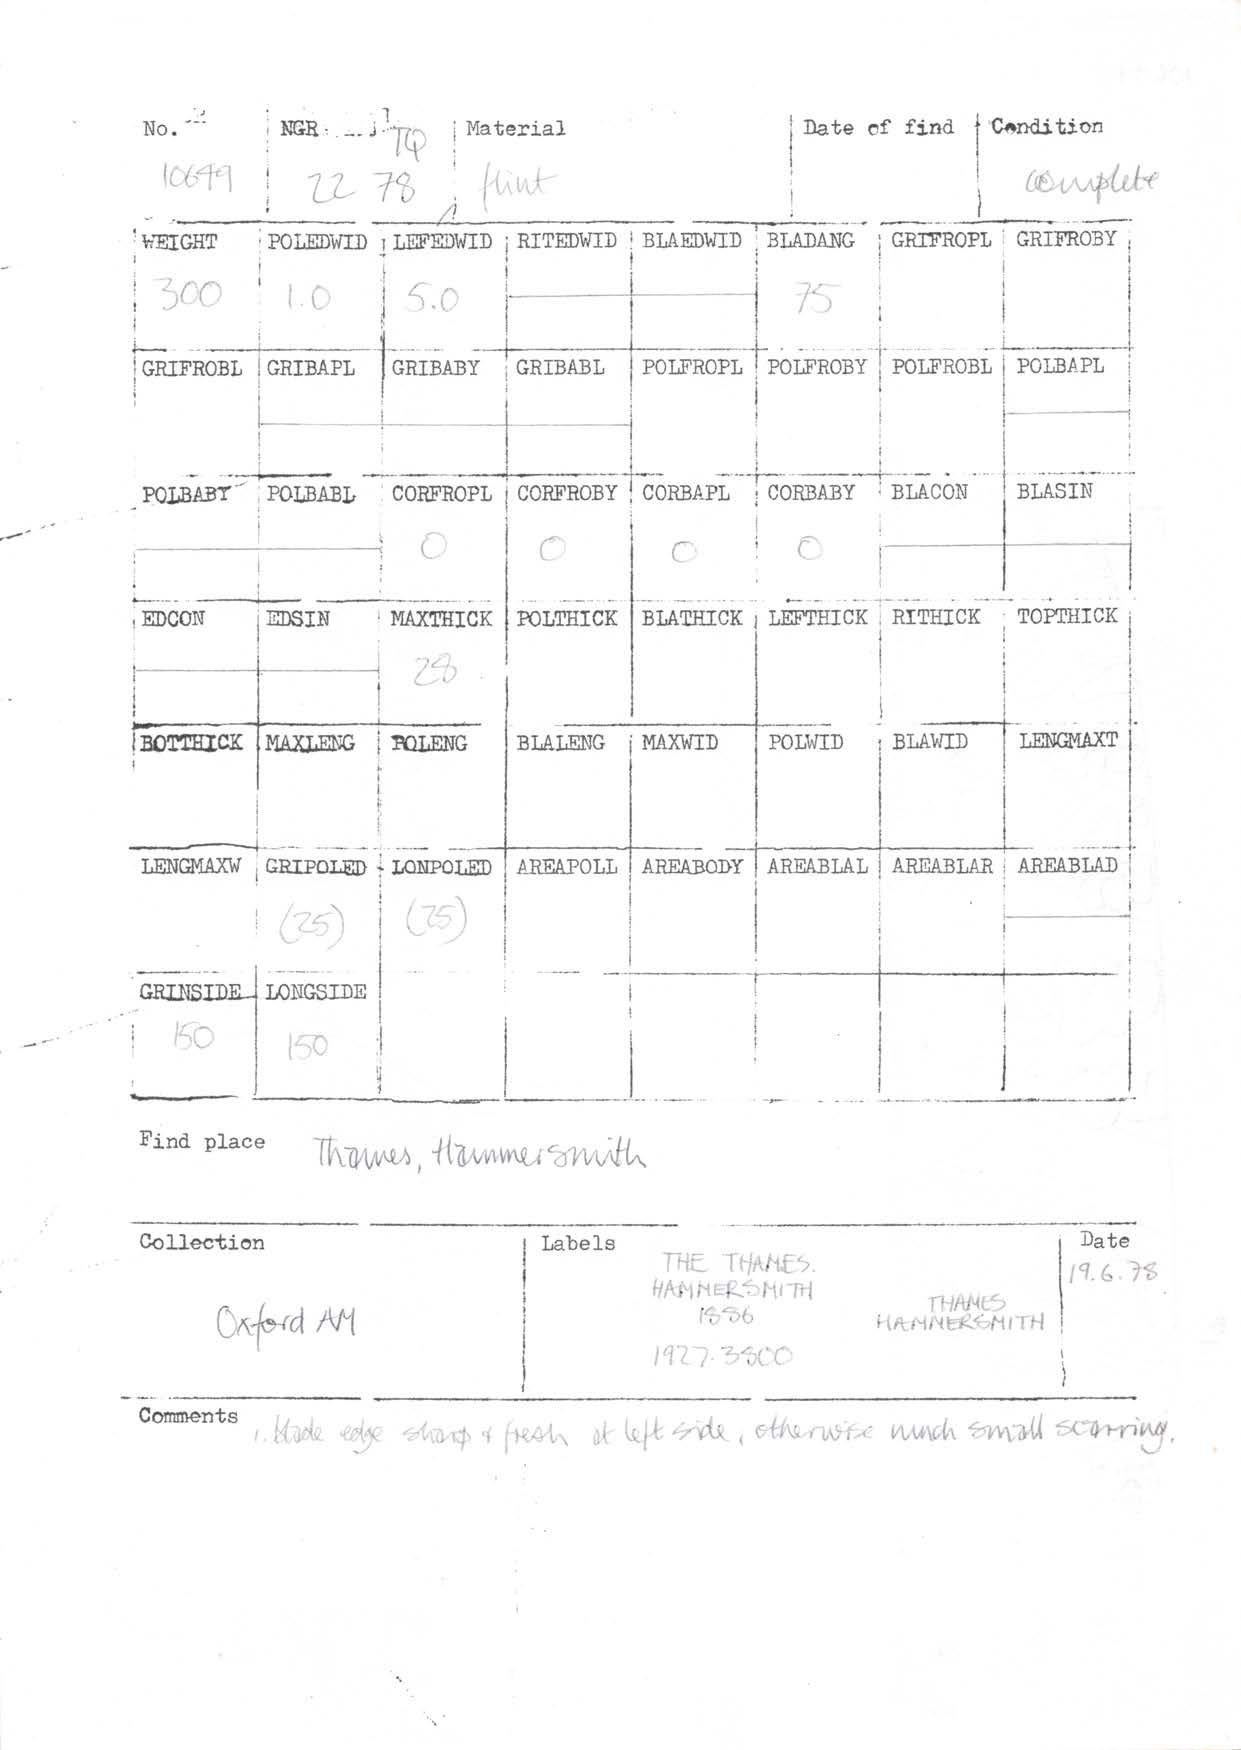 No. NGR TQ Material Date of find Condition
10649 22 78 flint complete
WEIGHT POLEDWID LEFEDWID RITEDWID BLAEDWID BLADANG GRIFROPL GRIFROBY
300 1.0 5.0 75
GRIFROBL GRIBAPL GRIBABY GRIBABL POLFROPL POLFROBY POLFROBL POLBAPL
POLBABY POLBABL CORFROPL CORFROBY CORBAPL CORBABY BLACON BLASIN
0 0 0 0
EDCON EDSIN MAXTHICK POLTHICK BLATHICK LEFTHICK RITHICK TOPTHICK
28
BOTTHICK MAXLENG POLENG BLALENG MAXWID POLWID BLAWID LENGMAXT
LENGMAXW GRIPOLED LONPOLED AREAPOLL AREABODY AREABLAL AREABLAR AREABLAD
(25) (25)
GRINSIDE LONGSIDE
150 150
Find place Thames, Hammersmith
Collection Labels Date
THE THAMES. 19.6.78
HAMMERSMITH THAMES
1886 HAMMERSMITH
Oxford AM
1927.3800
Comments 1. blade edge sharp & fresh at left side, otherwise much small scarring.